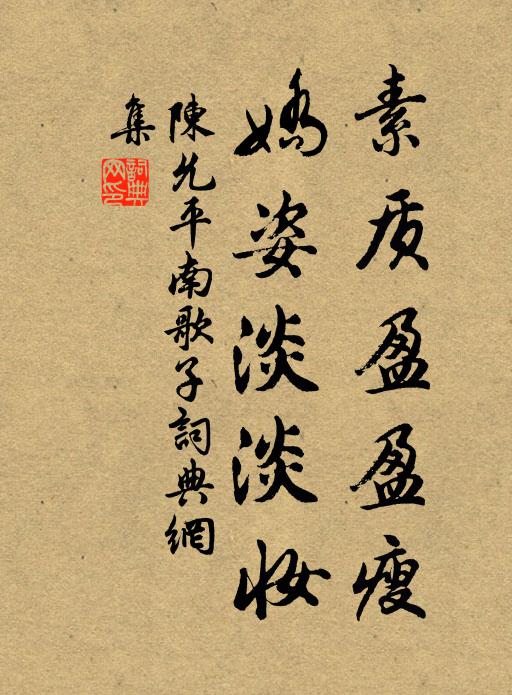 素质盈盈瘦
嬌姿淡淡妆
陳允平南歌子詞典網
集
詞典网印